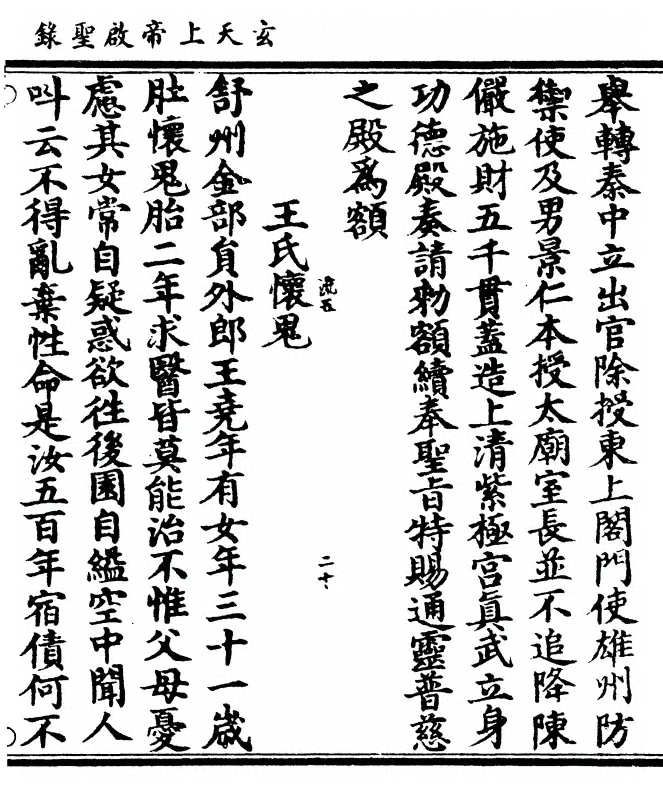 玄天上帝啟聖錄
舉轉秦中立出官除授東上閤門使雄州防
禦使及男景仁本授太廟室長並不追降陳
儼施財五千貫蓋造上清紫極宮眞武立身
功德殿奏請勑額續奉聖旨特賜通靈普慈
之殿爲額
流五
二十
王氏懷鬼
舒州金部員外郎王堯年有女年三十一歲
肚懷鬼胎二年求醫皆莫能治不惟父母憂
慮其女常自疑惑欲往後園自縊空中聞人
呌云不得亂棄性命是汝五百年宿債何不